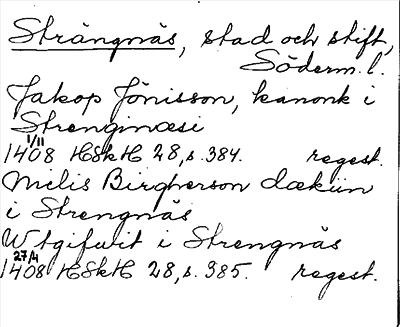 Strängnäs, stad och stift,
Söderm.l.
Jakop Jönisson, kanonk i
Strenginæsi
1/11
1408 HSkH 28, s. 384. regest.
Melis Birgherson dækiin
i Strengnäs
Wtgifuit i Strengnäs
27/4
1408 HSkH 28, s. 385. regest.